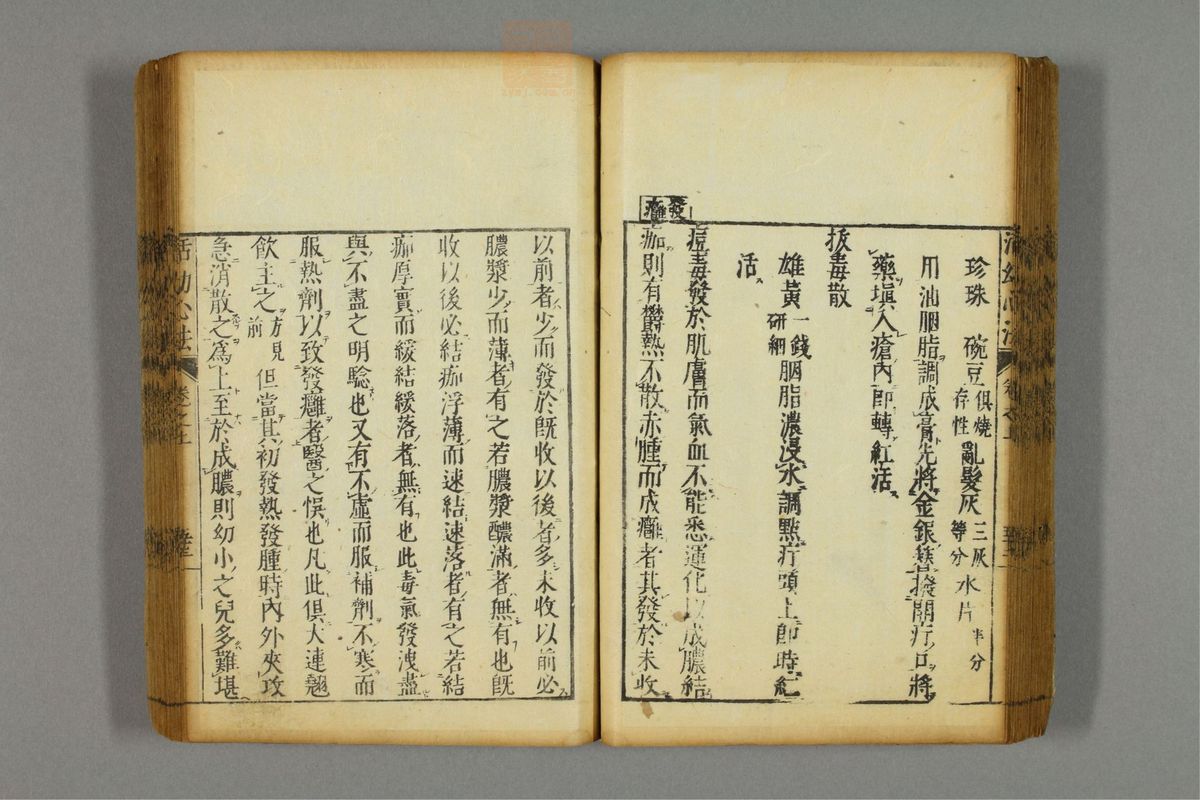 珍珠 碗豆俱燒存性亂髮灰三灰等分水片半分
用油胭脂調成膏先將金銀簪撥開疔口將
藥塡入瘡內即轉紅活
拔毒散
雄黃一錢研細胭脂濃浸水調點疔頭上即時紅
活
發癰
痘毒發於肌膚而氣血不能悉運化以成膿結
痂則有欝熱不散赤腫而成癰者其發於未收
以前者少而發於旣收以後者多未收以前必
膿漿少而薄者有之若膿漿醲滿者無有也旣
收以後必結痂浮薄而速結速落者有之若結
痂厚實而緩結緩落者無有也此毒氣發洩盡
與不盡之明騐也又有不虛而服補劑不寒而
服熱劑以致發癰者醫之悞也凡此俱大連翹
飲主之方見前但當其初發熱發腫時內外夾攻
急消散之爲上至於成膿則幼小之兒多難堪
活幼心法 卷之上